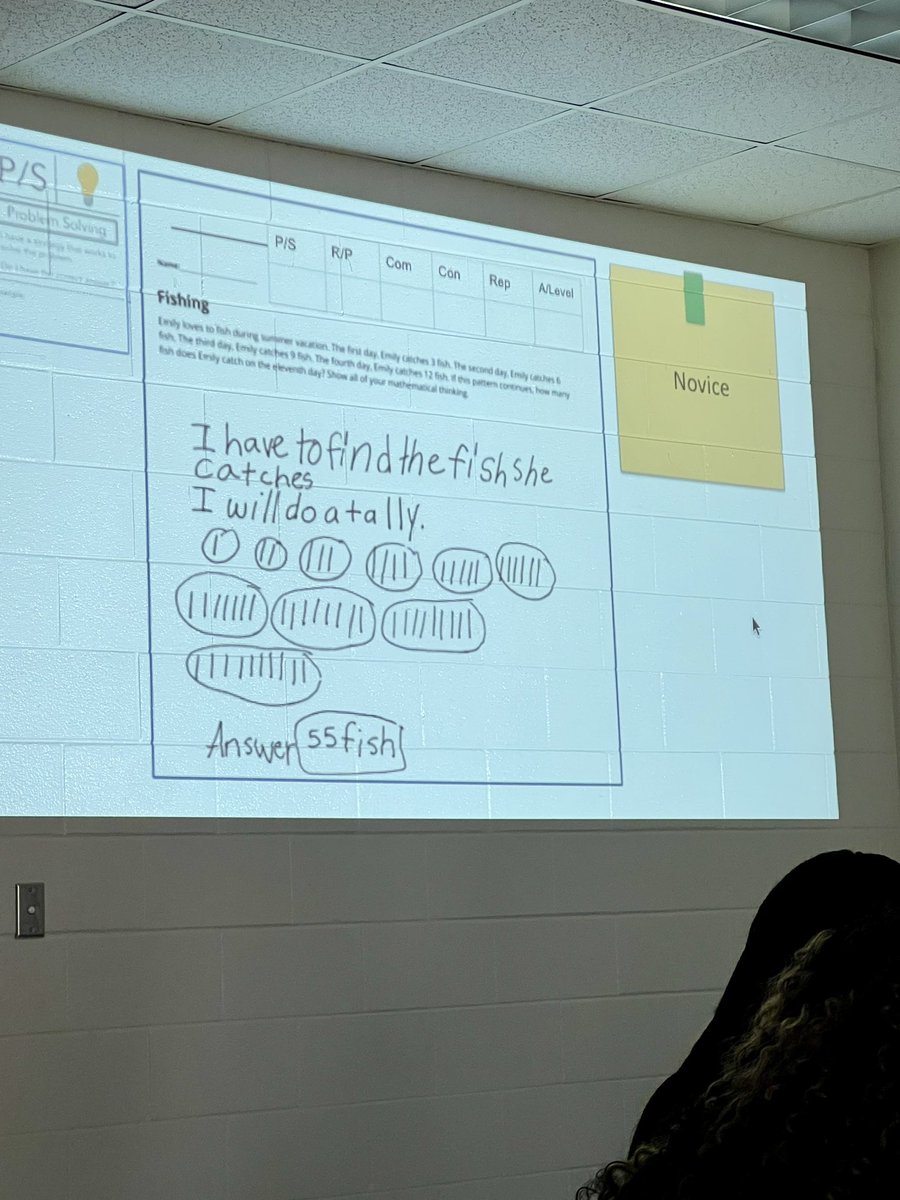 P/S
Problem Solving
P/S R/P Com Con Rep A/Level
Name:
Fishing
Emily loves to fish during summer vacation. The first day, Emily catches 3 fish. The second day, Emily catches 6
fish. The third day, Emily catches 9 fish. The fourth day, Emily catches 12 fish. If this pattern continues, how many
fish does Emily catch on the eleventh day? Show all of your mathematical thinking.
I have to find the fish she
catches
I will do a tally.
Answer 55 fish
Novice